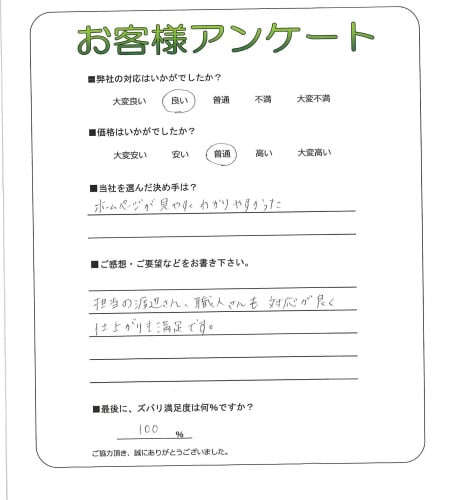 お客様アンケート
■弊社の対応はいかがでしたか？
大変良い 良い 普通 不満 大変不満
■価格はいかがでしたか？
大変安い 安い 普通 高い 大変高い
■当社を選んだ決め手は？
ホームページが見やすくわかりやすかった
■ご感想・ご要望などをお書き下さい。
担当の渡辺さん、職人さんも対応が良く
仕上がりも満足です。
■最後に、ズバリ満足度は何％ですか？
100 ％
ご協力頂き、誠にありがとうございました。